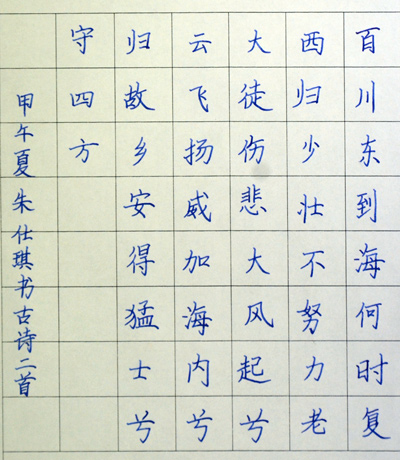 百川东到海何时复
西归少壮不努力老
大徒伤悲大风起兮
云飞扬威加海内兮
归故乡安得猛士兮
守四方
甲午夏朱仕琪书古诗二首